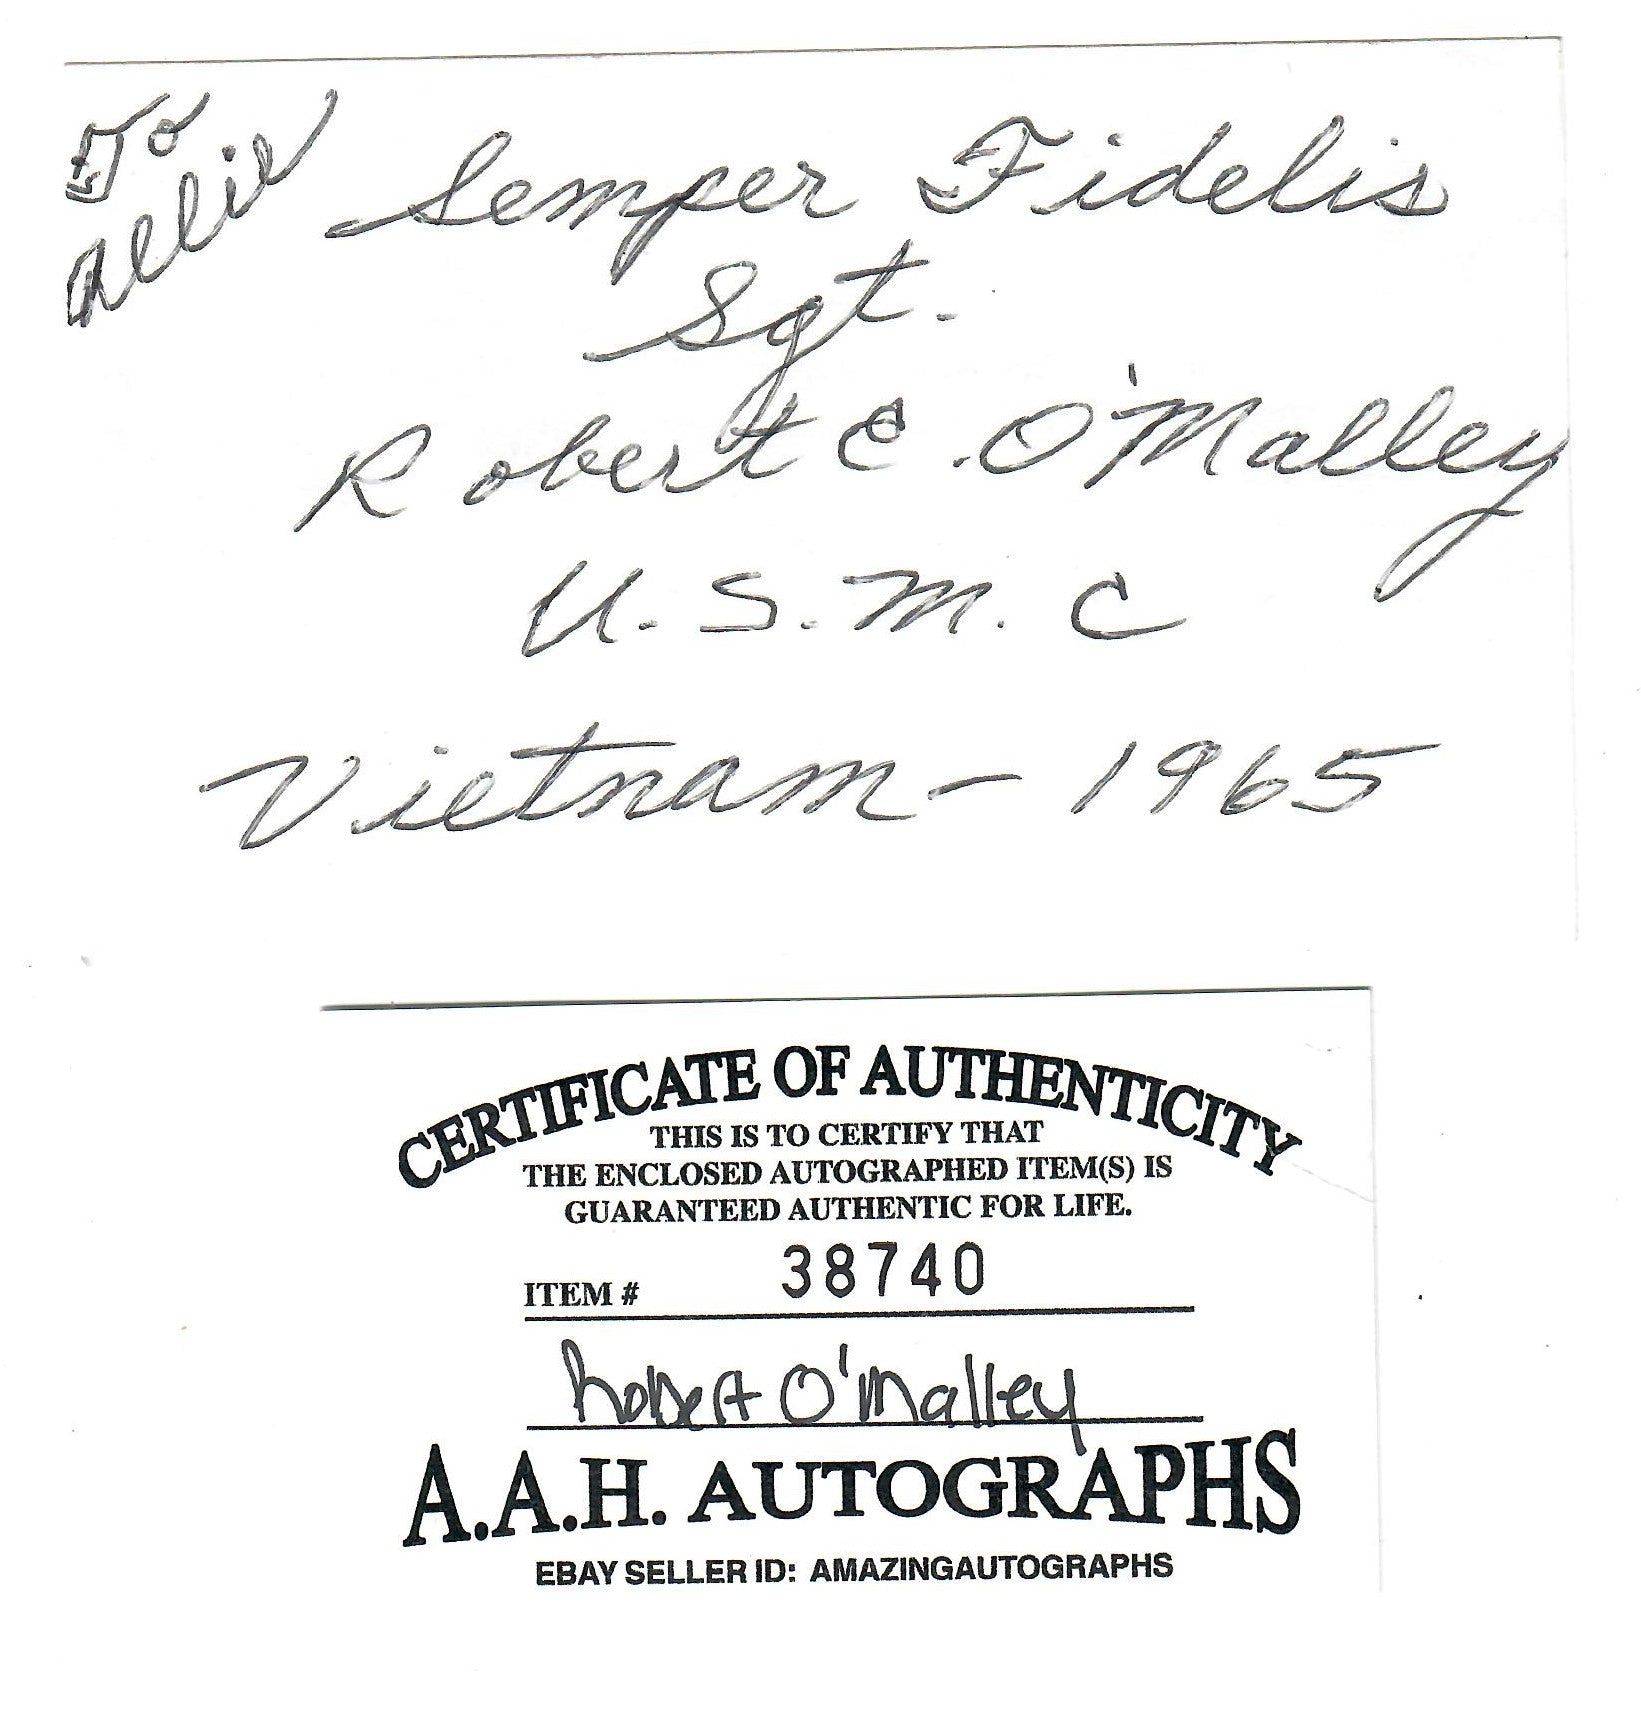 To
Allie
Semper Fidelis
Sgt.
Robert E. O'Malley
U.S.M.C
Vietnam - 1965
CERTIFICATE OF AUTHENTICITY
THIS IS TO CERTIFY THAT
THE ENCLOSED AUTOGRAPHED ITEM(S) IS
GUARANTEED AUTHENTIC FOR LIFE.
ITEM # 38740
Robert O'Malley
A.A.H. AUTOGRAPHS
EBAY SELLER ID: AMAZINGAUTOGRAPHS